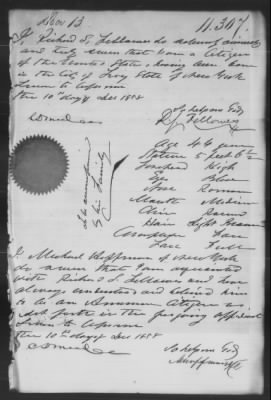 Nov 13
11.347.
I, Richard S. Fellowes do solemnly
and truly swear that I am a Citizen
of the United States, having been born
in the City of Troy State of New York
Sworn to before me
the 10th day of Dec 1858
R S Fellowes
Age 46 years
Stature 5 feet 8½
Forehead High
Eyes
Nose Roman
Mouth Medium
Chin Round
Hair Light Brown
Complexion Fair
Face Full
I, Michael Hoffman of New York
do swear that I am acquainted
with Richard S. Fellowes and have
always understood and believed him
to be an American Citizen as
set forth in the foregoing affidavit
Sworn to before me
the 10th day of Dec 1858
M Hoffman